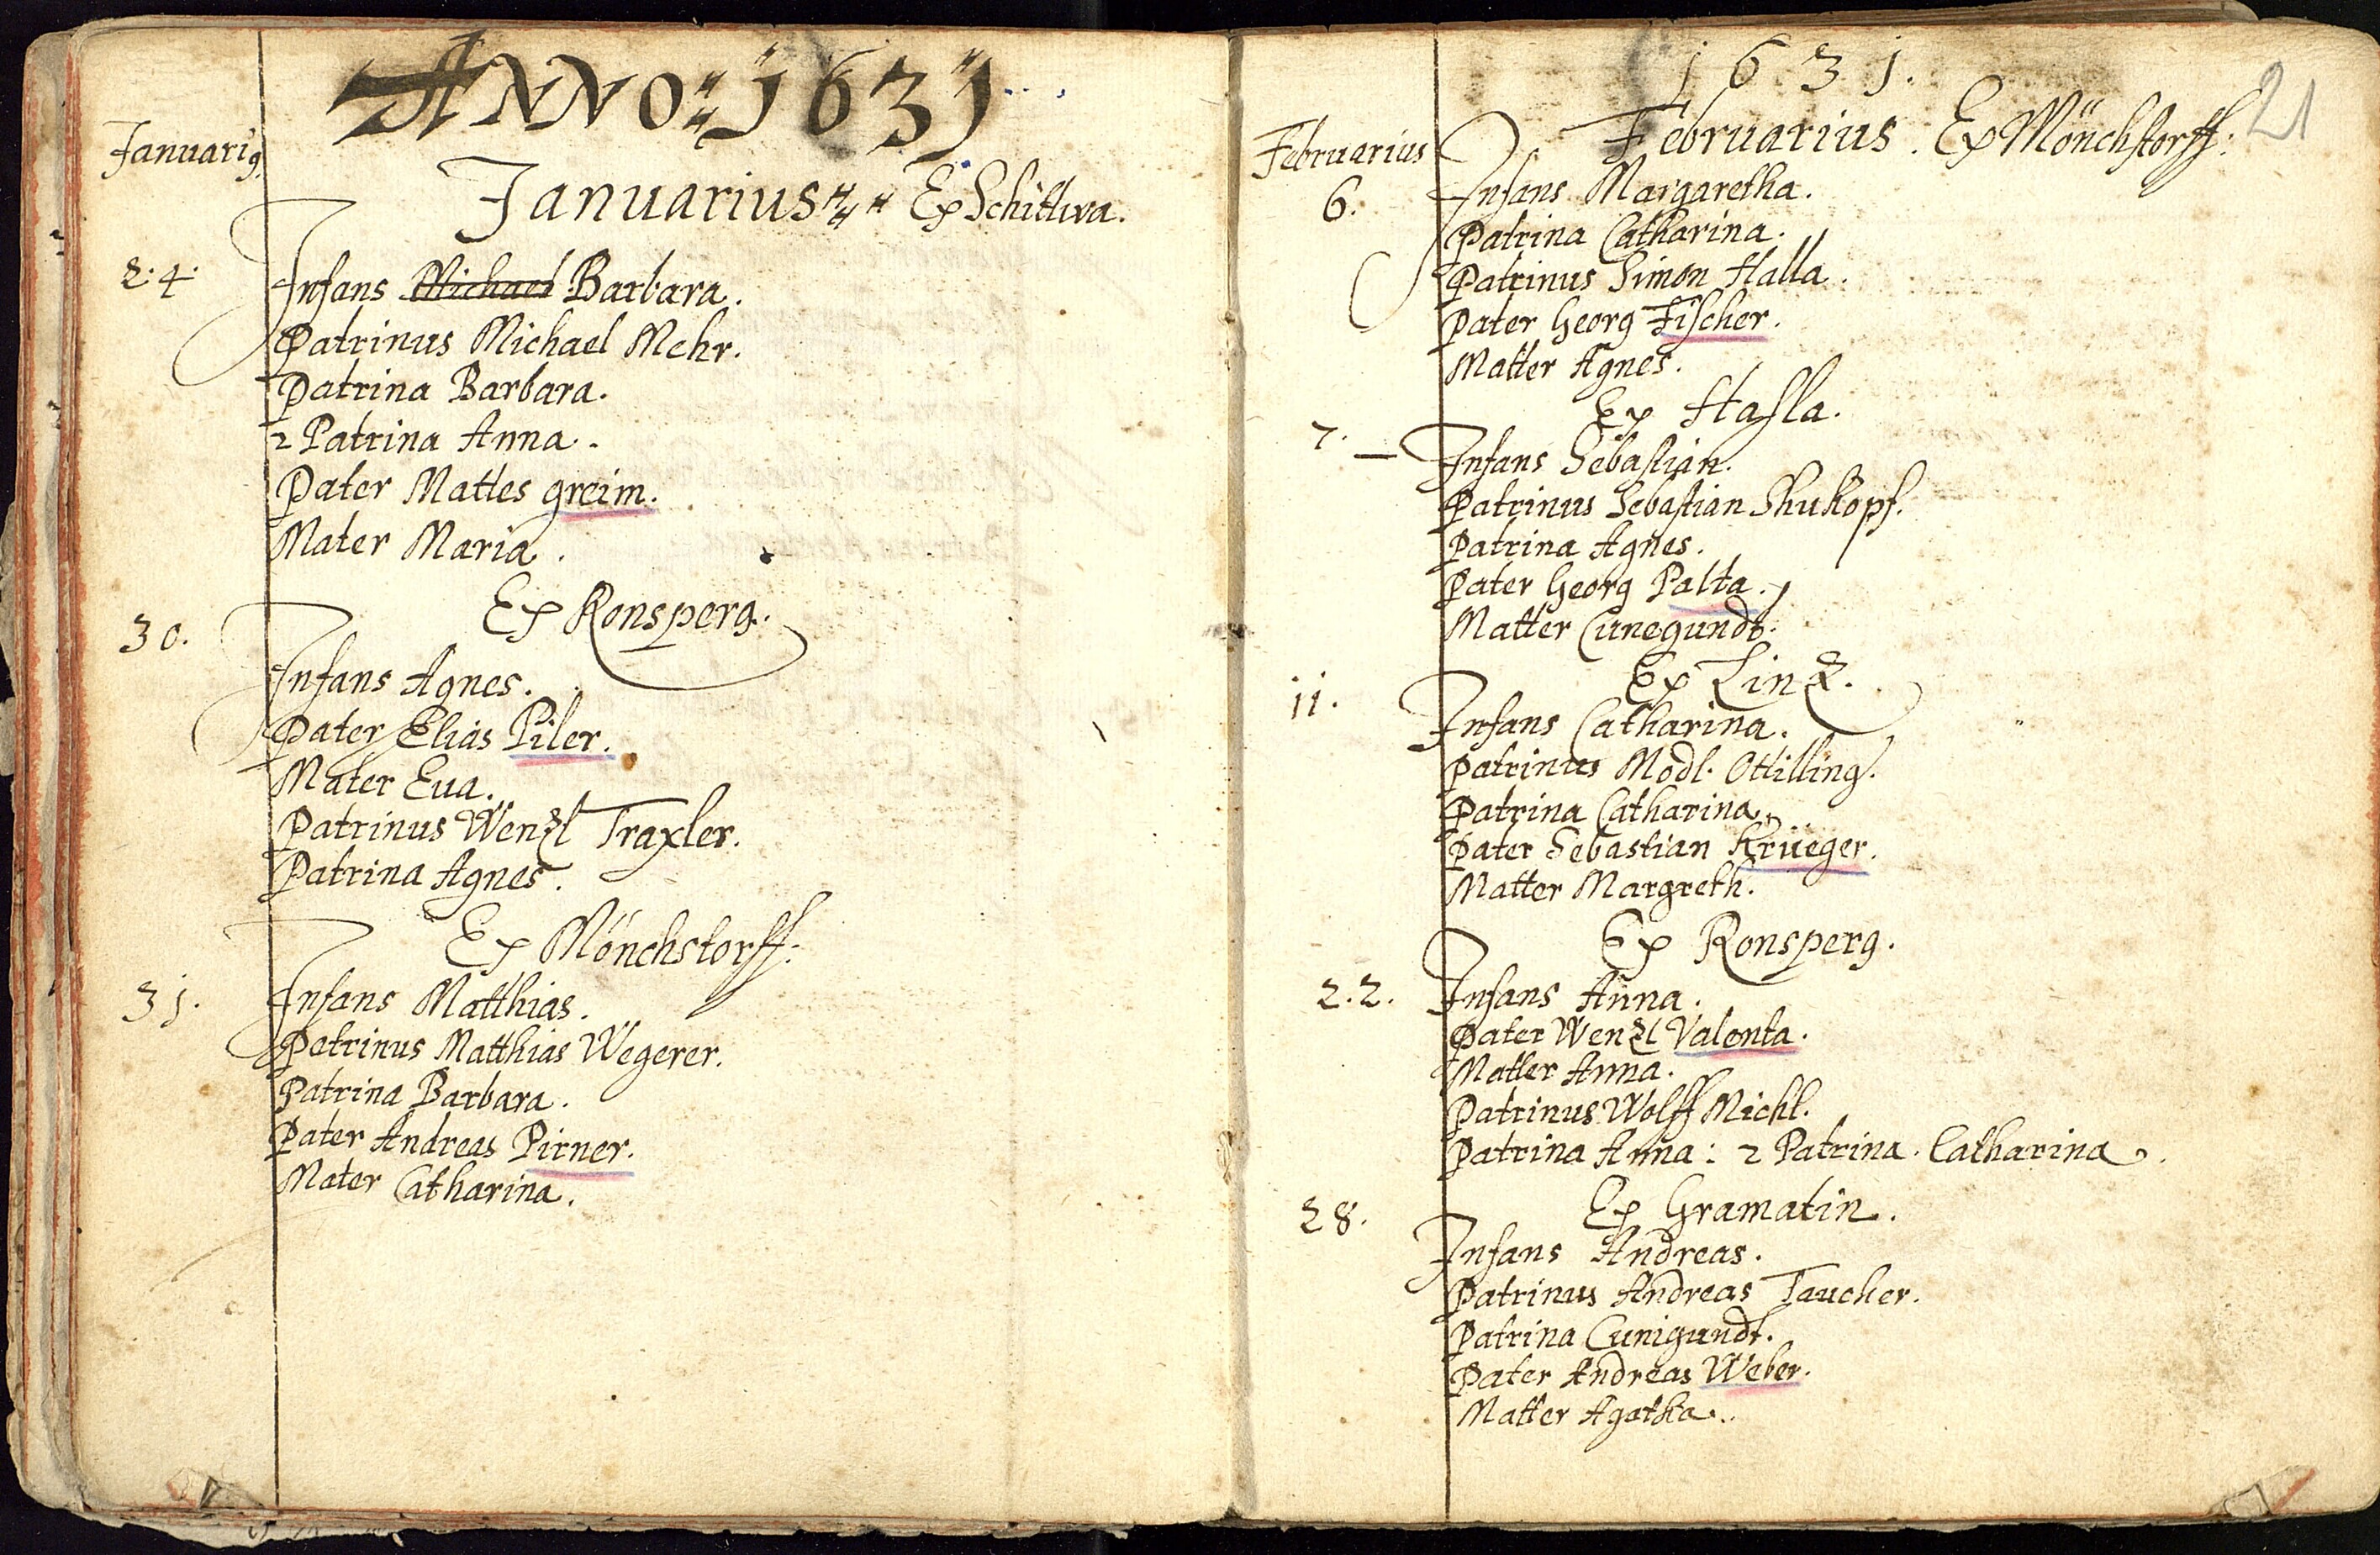 ANNO 1631
Januari9.
Januarius Ex Schittwa.
2.4. Infans Michael Barbara.
Patrinus Michael Mehr.
Patrina Barbara.
2 Patrina Anna.
Pater Mattes greim.
Mater Maria.
Ex Ronsperg.
30. Infans Agnes.
Pater Elias Piler.
Mater Eua.
Patrinus Wenzl Traxler.
Patrina Agnes.
Ex Mönchstorff:
31. Infans Matthias.
Patrinus Matthias Wegerer.
Patrina Barbara.
Pater Andreas Pirner.
Mater Catharina.
1631.
21
Februarius
Februarius. Ex Mönchstorff:
6. Infans Margaretha.
Patrina Catharina.
Patrinus Simon Halla.
Pater Georg Fischer.
Matter Agnes.
Ex Hasla.
7. Infans Sebastian.
Patrinus Sebastian Shukopf.
Patrina Agnes.
Pater Georg Palta.
Matter Cunegundt.
Ex Linz.
11. Infans Catharina.
Patrinus Modl. Ottilling.
Patrina Catharina.
Pater Sebastian Krüeger.
Matter Margreth.
Ex Ronsperg.
2.2. Infans Anna.
Pater Wenzl Valenta.
Matter Anna.
Patrinus Wolff Michl.
Patrina Anna: 2 Patrina. Catharina.
Ex Gramatin.
28. Infans Andreas.
Patrinus Andreas Taucher.
Patrina Cunigundt.
Pater Andreas Weber.
Matter Agatha.